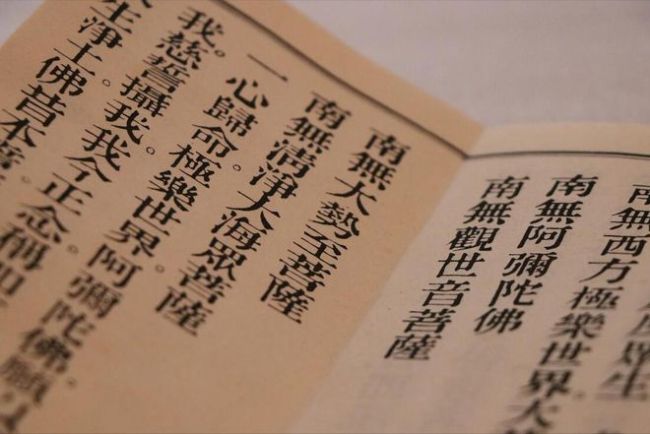 界生
南無西方極樂世界大
南無阿彌陀佛
南無觀世音菩薩
南無大勢至菩薩
南無清淨大海眾菩薩
一心歸命。極樂世界。阿彌陀佛。願
我。慈誓攝我。我今正念。稱如
生淨土。佛昔本誓。